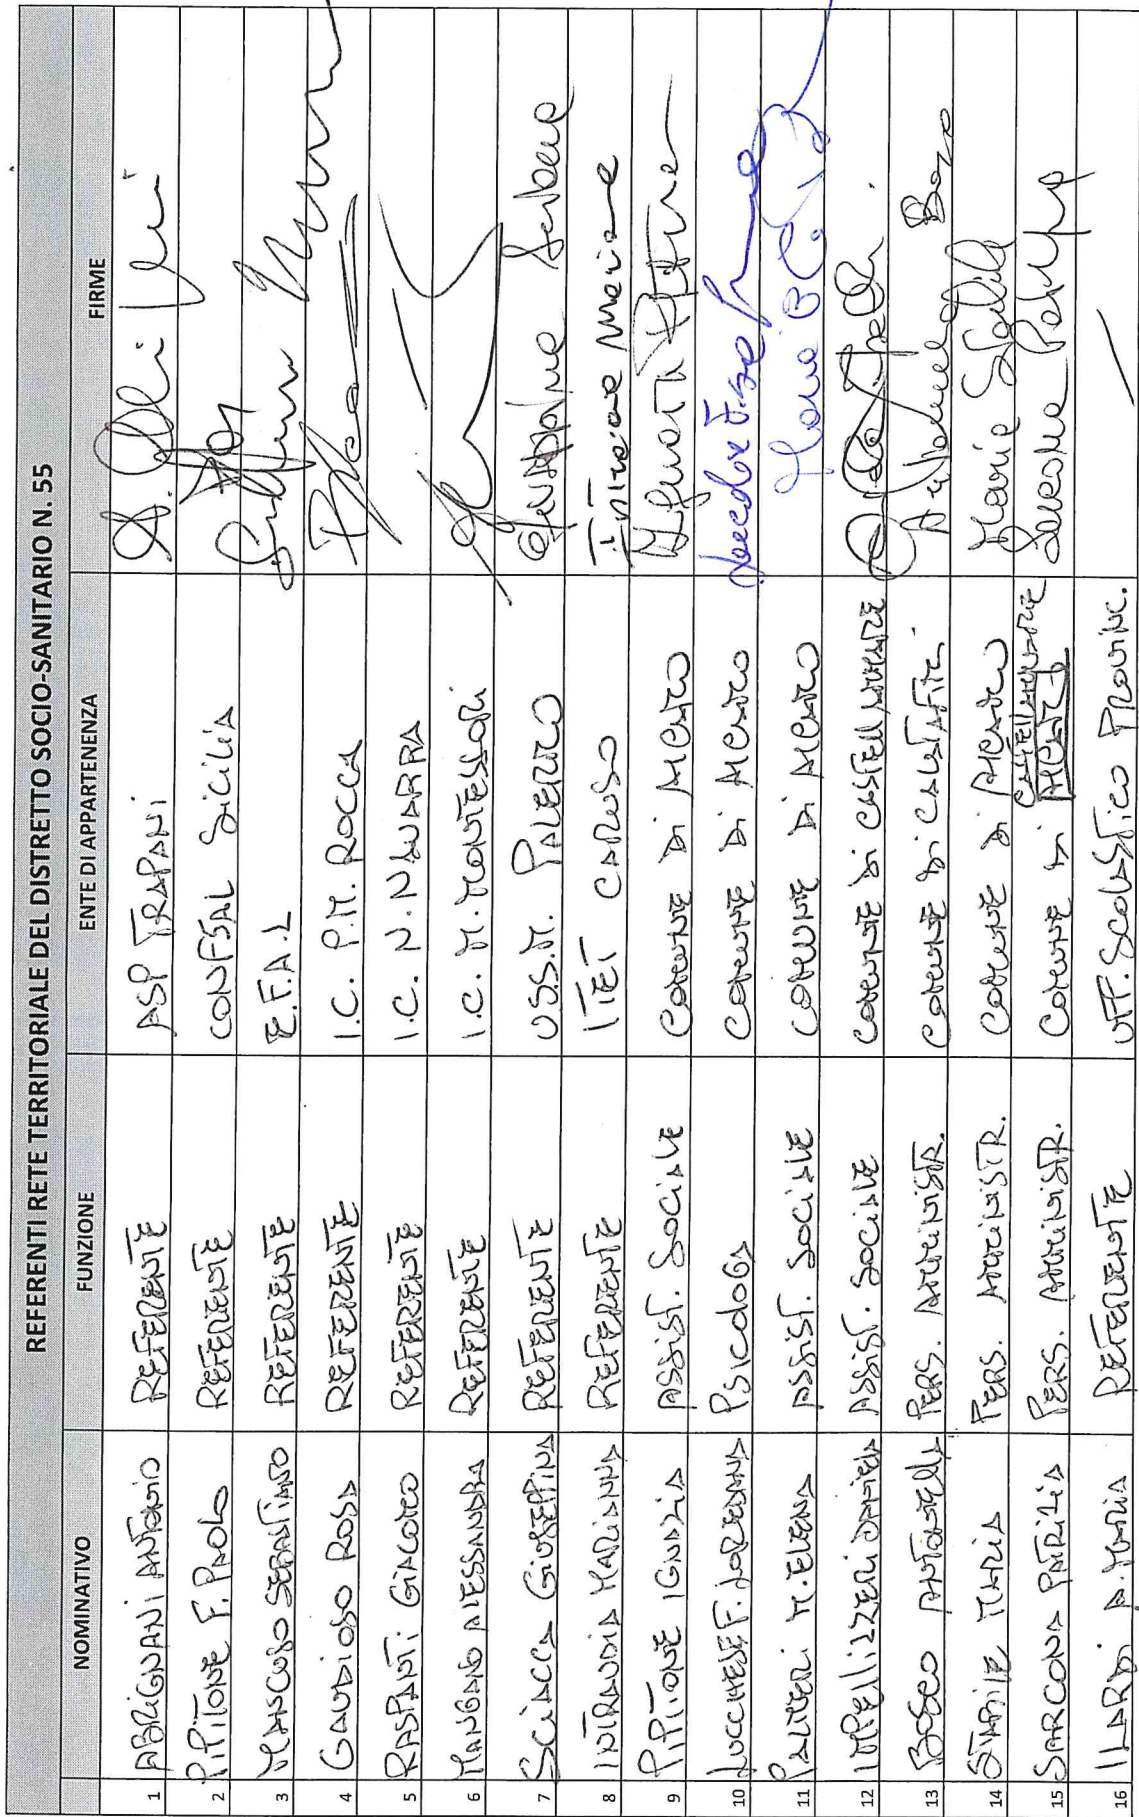 REFERENTI RETE TERRITORIALE DEL DISTRETTO SOCIO-SANITARIO N. 55
NOMINATIVO FUNZIONE ENTE DI APPARTENENZA FIRME
1 ABRIGNANI ANTONIO REFERENTE ASP TRAPANI
2 PIPITONE F. PAOLO REFERENTE CONFSAL SICILIA
3 MANCUSO SEBASTIANO REFERENTE E.F.A.L
4 GAUDIOSO ROSA REFERENTE I.C. P.M. ROCCA
5 RASPANTI GIACOMO REFERENTE I.C. N. NAVARRA
6 MANGANO ALESSANDRA REFERENTE I.C. M. MONTESSORI
7 SCIACCA GIUSEPPINA REFERENTE U.S.S.M. PALERMO
8 INTRAVAIA MARIANNA REFERENTE ITET CARUSO
9 PIPITONE IGNAZIA ASSIST. SOCIALE COMUNE DI ALCAMO
10 LUCCHESE F. LOREDANA PSICOLOGA COMUNE DI ALCAMO
11 PALMERI M. ELENA ASSIST. SOCIALE COMUNE DI ALCAMO
12 IMPELLIZZERI DANIELA ASSIST. SOCIALE COMUNE DI CASTELLAMMARE
13 BOSCO ANTONELLA PERS. AMMINISTR. COMUNE DI CALATAFIMI
14 STABILE MARIA PERS. AMMINISTR. COMUNE DI ALCAMO
15 SARCONA PATRIZIA PERS. AMMINISTR. COMUNE DI ALCAMO CASTELLAMMARE
16 ILARDI A. MARIA REFERENTE UFF. SCOLASTICO PROVINC.